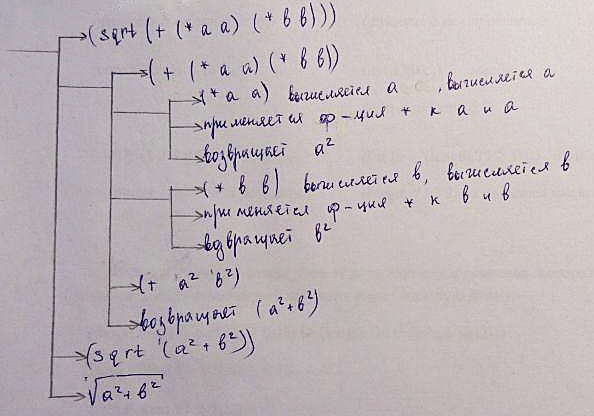 (sqrt (+ (* a a) (* в в)))
(+ (* a a) (* в в))
(* a a) вычисляется a, вычисляется a
применяется ф-ция * к a и a
возвращает a²
(* в в) вычисляется в, вычисляется в
применяется ф-ция * к в и в
возвращает в²
(+ 'a² 'в²)
возвращает (a²+в²)
(sqrt '(a²+в²))
'√a²+в²